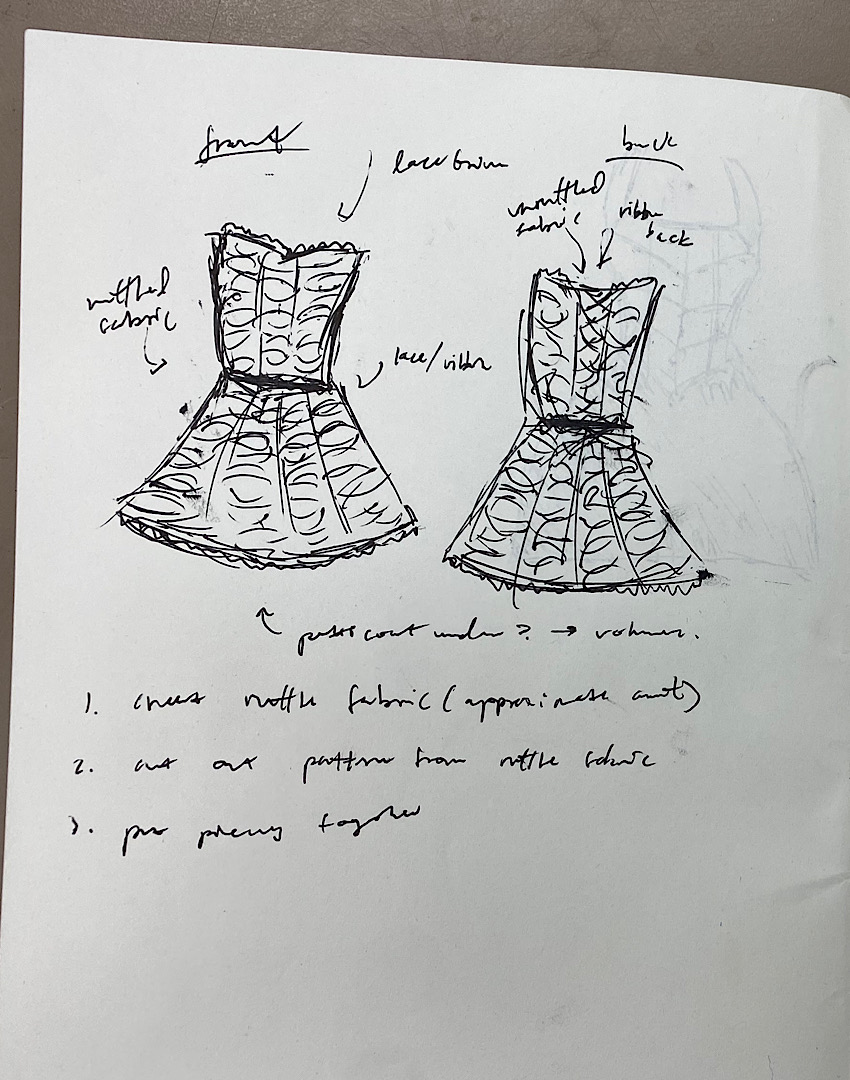 front
back
lace trim
unruffled
fabric
ribbon
back
ruffled
fabric
lace/ribbon
petticoat under? → volume.
1. create ruffle fabric (approximate amt)
2. cut out pattern from ruffle fabric
3. put pieces together